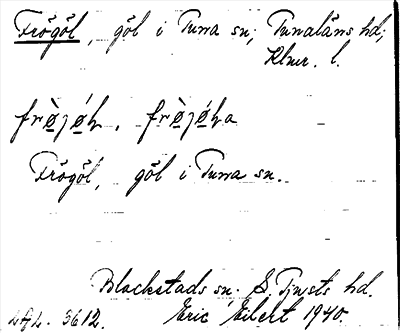 Frögöl, göl i Tuna sn; Tunaläns hd;
Klmr. l.
frø̀jǿh, frø̀jǿha
Frögöl, göl i Tuna sn.
Blackstads sn. S. Tjusts hd.
3612. Eric Eilert 1940.